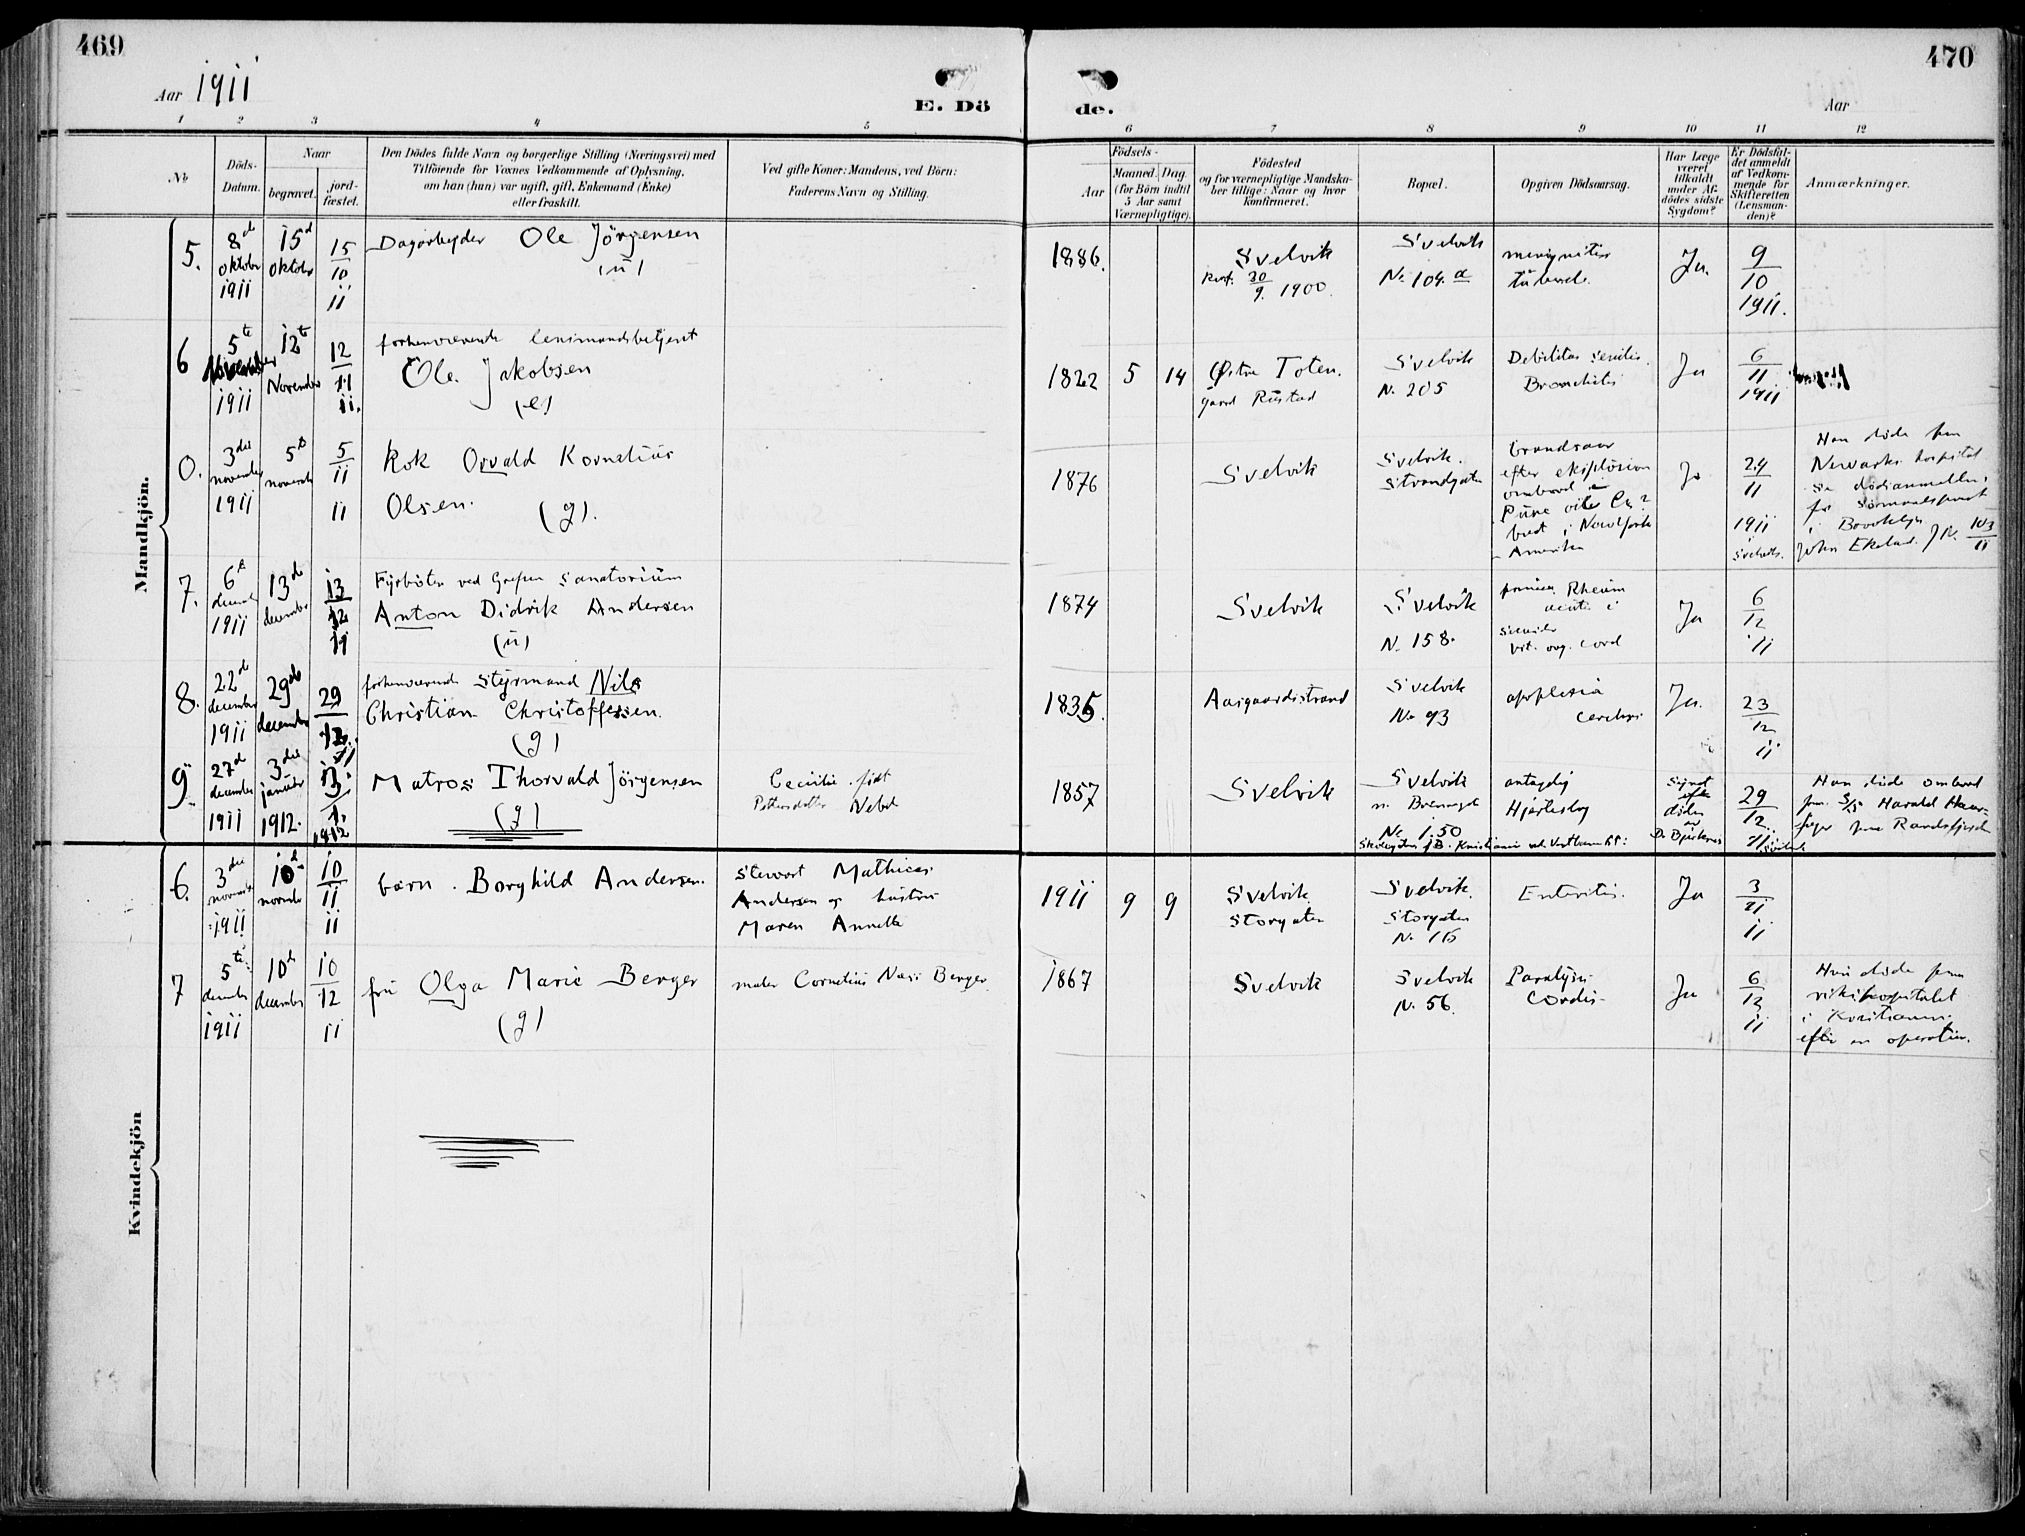 469
Aar 1911
E. Dö
1 2 3 4 5
No
Döds-
Datum.
Naar
begravet.
jord-
fæstet.
Den Dödes fulde Navn og borgerlige Stilling (Næringsvei) med
Tilföiende for Voxnes Vedkommende af Oplysning,
om han (hun) var ugift, gift, Enkemand (Enke)
eller fraskilt.
Ved gifte Koner: Mandens, ved Börn:
Faderens Navn og Stilling.
Mandkjön.
5.
8d
oktober
1911
15d
oktober
15
10
11
Dagarbeider Ole Jörgensen
(u)
6
5te
November
1911
12te
November
12
11
11.
forhenværende lensmandsbetjent
Ole Jakobsen
(e)
0.
3die
november
1911
5te
november
5
11
11
Kok Osvald Kornelius
Olsen. (g).
7.
6te
december
1911
13d
december
13
12
11
Fyrböter ved Grefsen Sanatorium
Anton Didrik Andersen
(u)
8.
22d
december
1911
29de
december
29
12.
11
forhenværende styrmand Nils
Christian Christoffersen.
(g)
9.
27d
december
1911
3die
januar
1912.
3
1.
1912
Matros Thorvald Jörgensen
(g)
Cecilie født
Pettersdatter
Kvindekjön
6.
3die
november
1911
10d
november
10
11
11
barn. Borghild Andersen.
Stewart Mathias
Andersen og hustru
Maren Annette
7
5te
december
1911
10d
december
10
12
11
fru Olga Marie Berger
(g)
maler Cornelius Berger
470
de.
Aar
6 7 8 9 10 11 12
Födsels-
Aar
Maaned. Dag.
(for Börn indtil
5 Aar samt
Værnepligtige).
Födested
og for værnepligtige Mandska-
ber tillige: Naar og hvor
konfirmeret.
Bopæl.
Opgiven Dödsaarsag.
Har Læge
været
tilkaldt
under Af-
dödes sidste
Sygdom?
Er Dödsfal-
det anmeldt
af Vedkom-
mende for
Skifteretten
(Lensman-
den)?
Anmærkninger.
1886.
Svelvik
konf. 30
9. 1900.
Svelvik
No 104. a
Ja.
9
10
1911.
1822 5 14
Østre Toten.
gaard Rustad
Svelvik
No 205
Debilitas senilis.
Bronchitis
Ja
6
11
1911
1876
Svelvik
Svelvik.
Strandgaten
brandsaar
efter eksplosion
ombord i
i
Amerika
Ja
24
11
1911
Svelvik.
Han døde paa
Newarks hospital
se dødsanmeldn.
fra sømandsprest
i Brooklyn
John Ekeland. JN. 103
11
1874
Svelvik
Svelvik
No 158.
Rheum
Ja
6
12
11
1835.
Aasgaardsstrand
Svelvik
No 93
apoplexia
cerebri
Ja.
23
12
11
1857
Svelvik
Svelvik
No 150
antagelig
Hjerteslag
Synet
efter
døden
av
29
12.
11
Svelvik
Han døde ombord
paa S/S Harald Haar-
fager paa Randsfjorden
1911 9 9
Svelvik
Storgaten
Svelvik.
Storgaten
No 116
Enteritis.
Ja
3
11
11
1867
Svelvik
Svelvik
No 56.
Paralysis
Cordis
Ja
6
12
11
Hun døde paa
rikshospitalet
i Kristiania
efter en operation.